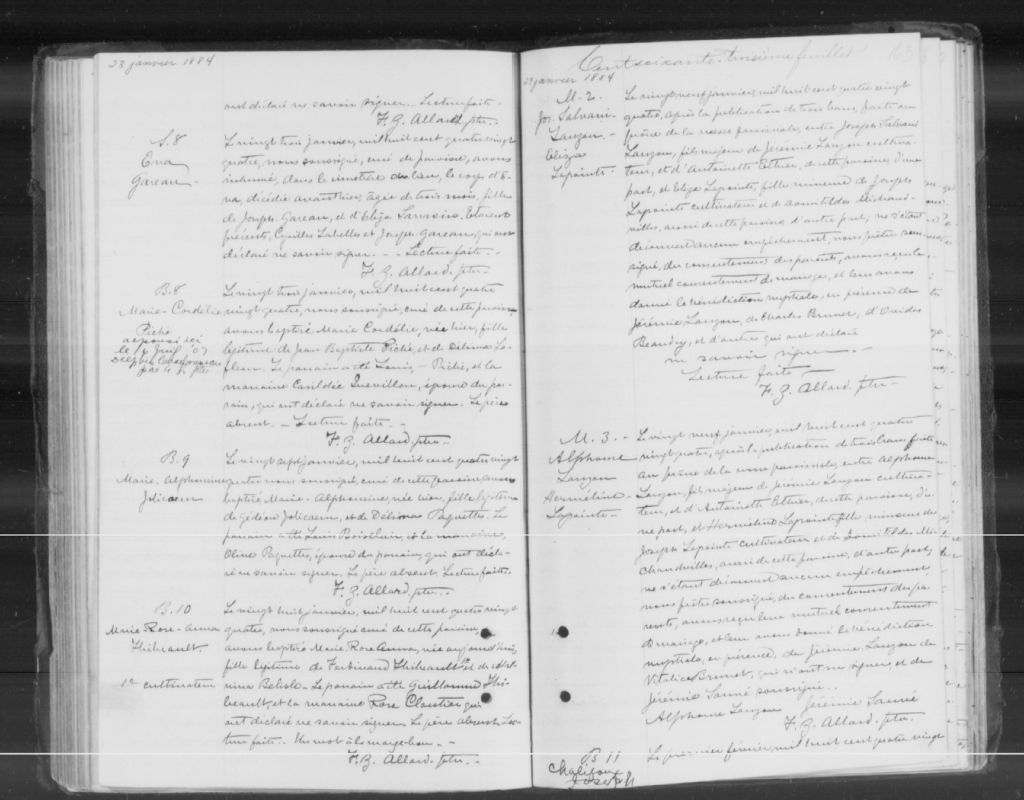 23 janvier 1884
ont déclaré ne savoir signer. Lecture faite.
F. Z. Allard, ptre.
S. 8
Eva
Gareau
Le vingt trois janvier, mil huit cent quatre vingt
quatre, nous soussigné, curé de paroisse, avons
inhumé, dans le cimetière du lieu, le corps d'E-
va, décédée avant hier, âgée de trois mois, fille
de Joseph Gareau, et d'Eliza. Etaient
présents, Cyrille Labelle et Joseph Gareau, qui ont
déclaré ne savoir signer. - - Lecture faite. -
F. Z. Allard, ptre.
B. 8
Marie-Cordélie
Piché
Le vingt trois janvier, mil huit cent quatre
vingt quatre, nous soussigné, curé de cette paroisse,
avons baptisé Marie Cordélie, née hier, fille
légitime de Jean Baptiste Piché, et de Délima La-
fleur. Le parrain a été Louis Piché, et la
marraine Quévillon, épouse du par-
rain, qui ont déclaré ne savoir signer. Le père
absent. - Lecture faite. -
F. Z. Allard, ptre.
B. 9
Marie-Alphonsine
Jolicoeur
Le vingt sept janvier, mil huit cent quatre vingt
quatre nous soussigné, curé de cette paroisse avons
baptisé Marie-Alphonsine, née hier, fille légitime
de Gédéon Jolicoeur, et de Délima Paquette. Le
parrain a été Louis Boisclair, et la marraine,
Oline Paquette, épouse du parrain, qui ont décla-
ré ne savoir signer. Le père absent. Lecture faite.
F. Z. Allard, ptre.
B. 10
Marie Rose-Anna
Thibeault.
1° cultivateur
Le vingt huit janvier, mil huit cent quatre vingt
quatre, nous soussigné curé de cette paroisse,
avons baptisé Marie Rose Anna, née aujourd'hui,
fille légitime de Ferdinand Thibeault 1° et de
Belisle. Le parrain a été Guillaume Thi-
beault, et la marraine Rose Cloutier qui
ont déclaré ne savoir signer. Le père absent. Lec-
ture faite. Un mot à la marge bon. -
F. Z. Allard, ptre. -
Cent soixante-troisième feuillet
163
29 janvier 1884
M. 2.
Jos. Salvani
Lauzon -
Eliza
Lapointe -
Le vingt neuf janvier, mil huit cent quatre vingt
quatre, après la publication de trois bans, faite au
prône de la messe paroissiale, entre Joseph Salvani
Lauzon, fils majeur de Jérémie Lauzon cultiva-
teur, et d'Antoinette Ethier, de cette paroisse, d'une
part, et Eliza Lapointe, fille mineure de Joseph
Lapointe cultivateur et de Domitilde Michaud-
ville, aussi de cette paroisse, d'autre part; ne s'étant
découvert aucun empêchement, nous prêtre sous-
signé, du consentement des parents, avons reçu le
mutuel consentement de mariage, et leur avons
donné la bénédiction nuptiale, en présence de
Jérémie Lauzon, de Charles Brunet, d'Ovide
Beaudry, et d'autres qui ont déclaré
ne savoir signer. -
Lecture faite
F. Z. Allard, ptre -
M. 3. -
Alphonse
Lauzon
Herméline
Lapointe -
Le vingt neuf janvier, mil huit cent quatre
vingt quatre, après la publication de trois bans faite
au prône de la messe paroissiale, entre Alphonse
Lauzon, fils majeur de Jérémie Lauzon cultiva-
teur, et d'Antoinette Ethier, de cette paroisse, d'u-
ne part, et Herméline Lapointe fille mineure de
Joseph Lapointe cultivateur et de Domitilde Mi-
chaudville, aussi de cette paroisse, d'autre part,
ne s'étant découvert aucun empêchement,
nous prêtre soussigné, du consentement des pa-
rents, avons reçu leur mutuel consentement
de mariage, et leur avons donné la bénédiction
nuptiale, en présence, de Jérémie Lauzon, de
Brunet, qui signer, et de
Jérémie Sauvé soussigné. .
Alphonse Lauzon Jérémie Sauvé
F. Z. Allard, ptre.
B 11
Joseph
Le premier février, mil huit cent quatre vingt